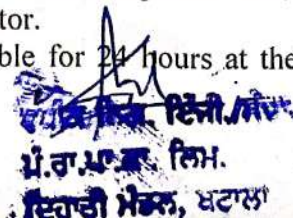 tor.
ble for 24 hours at the
ਨਿਗ. ਇੰਜੀ./ਸੰਚਾ.
ਪੰ.ਰਾ.ਪਾ.ਕਾ. ਲਿਮ.
ਦਿਹਾਤੀ ਮੰਡਲ, ਬਟਾਲਾ